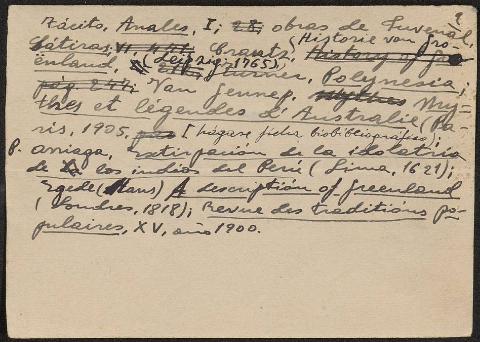 2
Tácito, Anales, I; 28; obras de Juvenal,
Sátiras, VI, 441; Crantz (Historie von Gro-
enland, (Leipzig, 1765); History of
Turner, Polynesia,
pág 241; Van Jennep, Mythes My-
thes et légendes d'Australie (Pa-
ris, 1905, pág [hágase ficha biobibliográfica);
P. Arriaga, Extirpación de la idolatría
de los indios del Perú (Lima, 1621);
Egede (Hans) A description of Greenland
(Londres, 1818); Revue des traditions po-
pulaires, XV, año 1900.